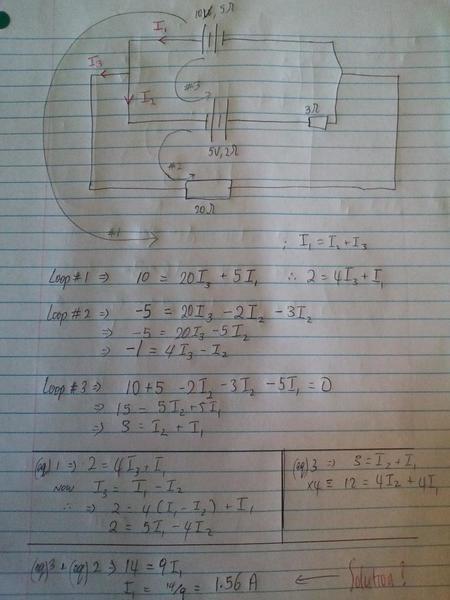 10V, 5Ω
I₁
I₃
#3
I₂
3Ω
5V, 2Ω
#2
20Ω
#1
; I₁ = I₂ + I₃
Loop #1 ⇒ 10 = 20I₃ + 5I₁ ∴ 2 = 4I₃ + I₁
Loop #2 ⇒ -5 = 20I₃ - 2I₂ - 3I₂
⇒ -5 = 20I₃ - 5I₂
⇒ -1 = 4I₃ - I₂
Loop #3 ⇒ 10 + 5 - 2I₂ - 3I₂ - 5I₁ = 0
⇒ 15 = 5I₂ + 5I₁
⇒ 3 = I₂ + I₁
(eq) 1 ⇒ 2 = 4I₃ + I₁
Now I₃ = I₁ - I₂
∴ ⇒ 2 = 4(I₁ - I₂) + I₁
2 = 5I₁ - 4I₂
(eq) 3 ⇒ 3 = I₂ + I₁
x4 ≡ 12 = 4I₂ + 4I₁
(eq) 3 + (eq) 2 ⇒ 14 = 9I₁
I₁ = 14/9 = 1.56 A ← Solution?